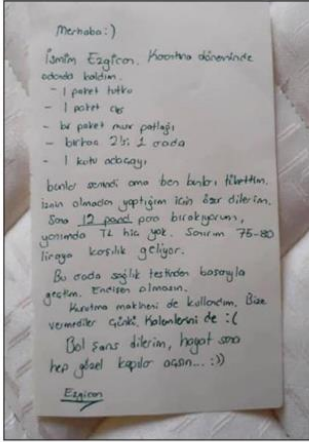 Merhaba :)
İsmim Ezgican. Karantina döneminde
odanda kaldım.
- 1 paket tutku
- 1 paket
- bir paket mısır patlağı
- birkaç 2si 1 arada
- 1 kutu adaçayı
bunlar senindi ama ben bunları tükettim.
İznin olmadan yaptığım için özür dilerim.
Sana 12 pand para bırakıyorum,
yanımda TL hiç yok. Sanırım 75-80
liraya karşılık geliyor.
Bu arada sağlık testinden başarıyla
geçtim. Endişen olmasın.
Kurutma makineni de kullandım. Bize
vermediler çünkü. Kalemlerini de :(
Bol şans dilerim, hayat sana
hep güzel kapılar açsın... :))
Ezgican